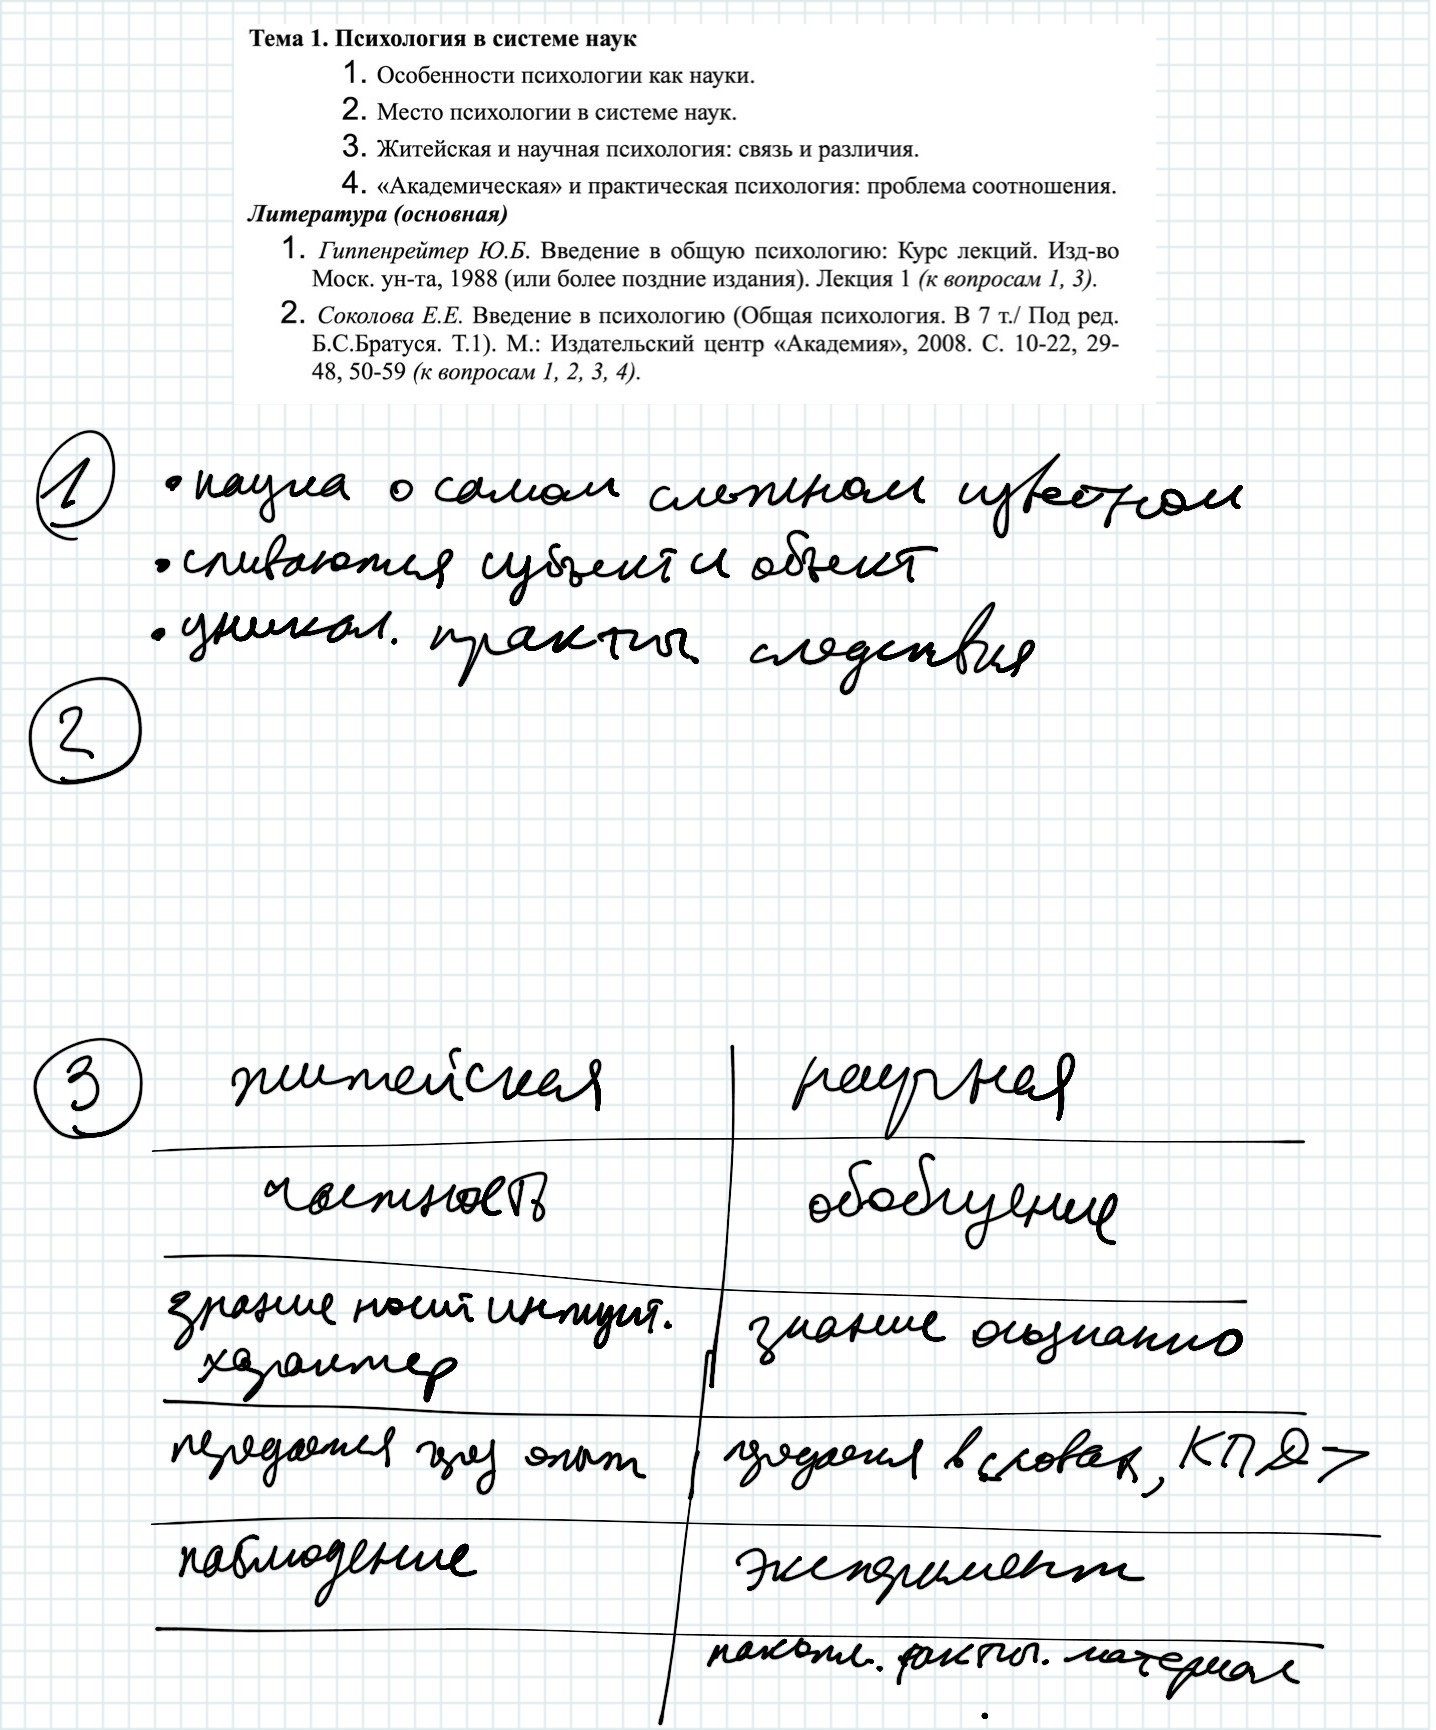 Тема 1. Психология в системе наук
1. Особенности психологии как науки.
2. Место психологии в системе наук.
3. Житейская и научная психология: связь и различия.
4. «Академическая» и практическая психология: проблема соотношения.
Литература (основная)
1. Гиппенрейтер Ю.Б. Введение в общую психологию: Курс лекций. Изд-во
Моск. ун-та, 1988 (или более поздние издания). Лекция 1 (к вопросам 1, 3).
2. Соколова Е.Е. Введение в психологию (Общая психология. В 7 т./ Под ред.
Б.С.Братуся. Т.1). М.: Издательский центр «Академия», 2008. С. 10-22, 29-
48, 50-59 (к вопросам 1, 2, 3, 4).
1 • наука о самом сложном известном
• сливаются субъект и объект
• уникал. практич. следствия
2
3 житейская научная
частность обобщение
знание носит интуит. знание осознанно
характер
передается через опыт передается в словах, КПД >
наблюдение эксперимент
накопл. фактич. материал